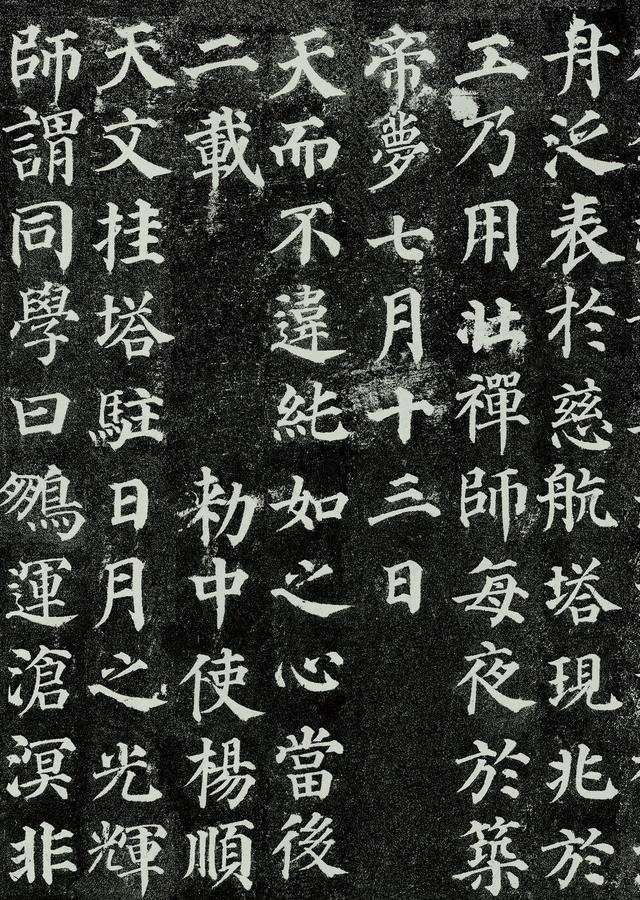 身泛表於慈航塔現兆於
工乃用壯禪師每夜於築
帝夢七月十三日
天而不違純如之心當後
二載 勅中使楊順
天文挂塔駐日月之光輝
師謂同學曰鵬運滄溟非